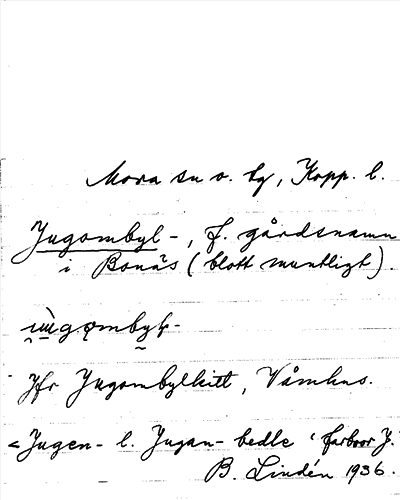 Mora sn o. tg, Kopp. l.
Jugombyl-, f. gårdsnamn
i Bonäs (blott muntligt).
Jfr Jugombylkitt, Våmhus.
< Jugen- l. Jugan- bedle 'farbror J.'
B. Lindén 1936.